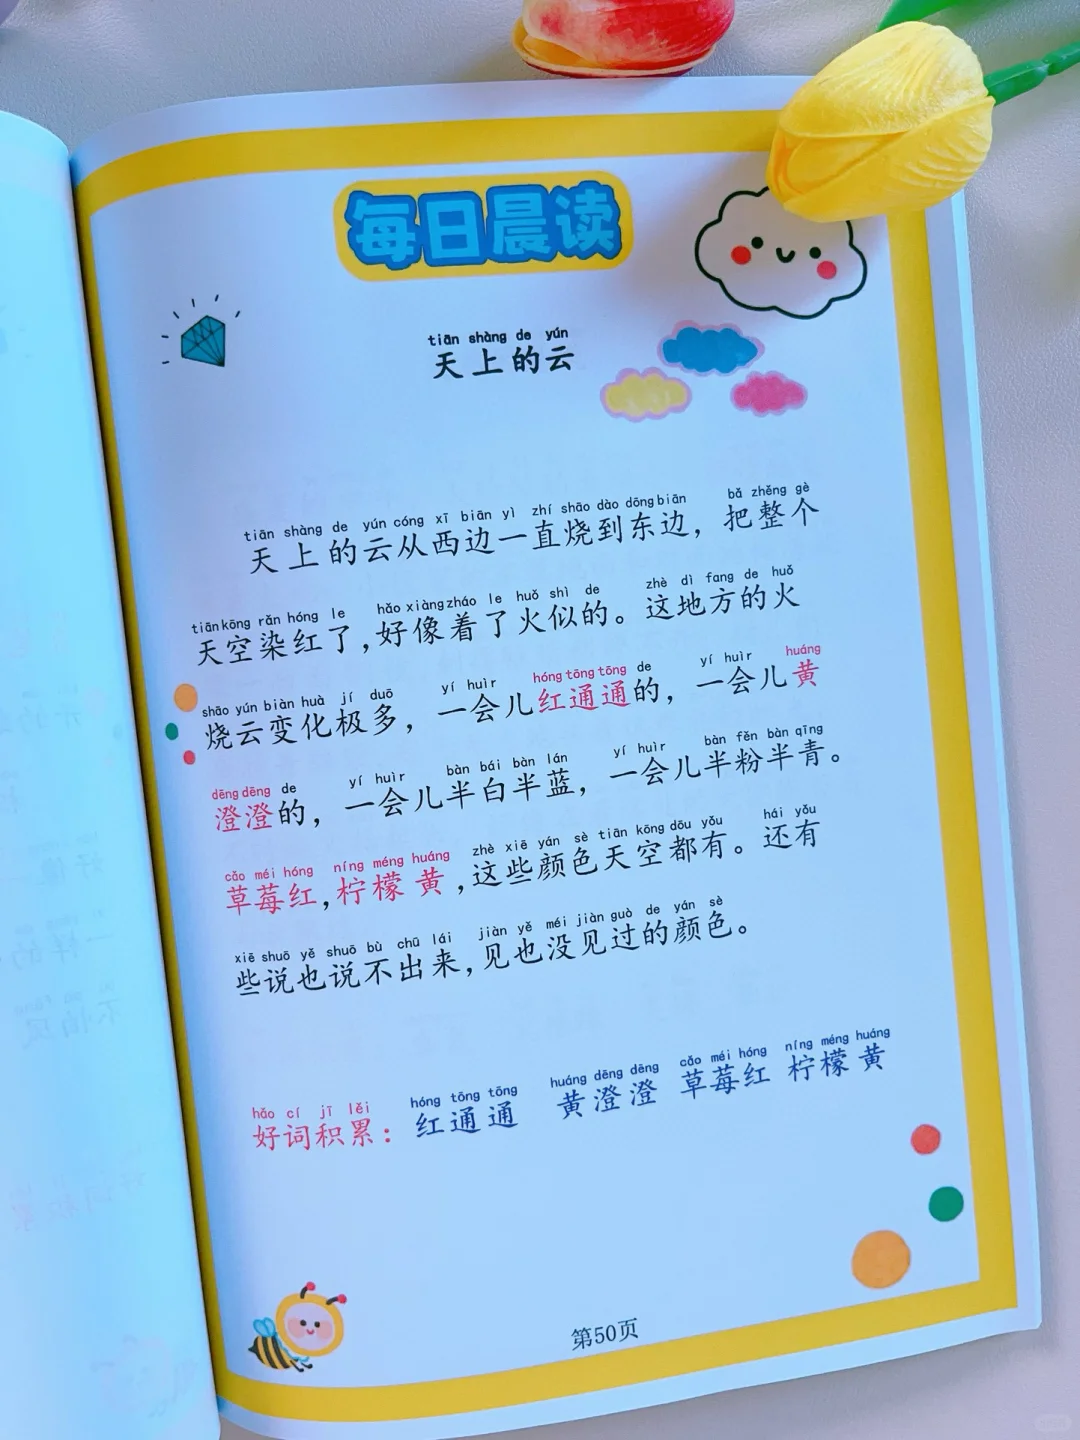 每日晨读
tiān shàng de yún
天上的云
tiān shàng de yún cóng xī biān yì zhí shāo dào dōng biān bǎ zhěng gè
天上的云从西边一直烧到东边，把整个
tiān kōng rǎn hóng le hǎo xiàng zháo le huǒ shì de zhè dì fang de huǒ
天空染红了，好像着了火似的。这地方的火
shāo yún biàn huà jí duō yí huìr hóng tōng tōng de yí huìr huáng
烧云变化极多，一会儿红通通的，一会儿黄
dēng dēng de yí huìr bàn bái bàn lán yí huìr bàn fěn bàn qīng
澄澄的，一会儿半白半蓝，一会儿半粉半青。
cǎo méi hóng níng méng huáng zhè xiē yán sè tiān kōng dōu yǒu hái yǒu
草莓红，柠檬黄，这些颜色天空都有。还有
xiē shuō yě shuō bù chū lái jiàn yě méi jiàn guò de yán sè
些说也说不出来，见也没见过的颜色。
hǎo cí jī lěi hóng tōng tōng huáng dēng dēng cǎo méi hóng níng méng huáng
好词积累：红通通 黄澄澄 草莓红 柠檬黄
第50页